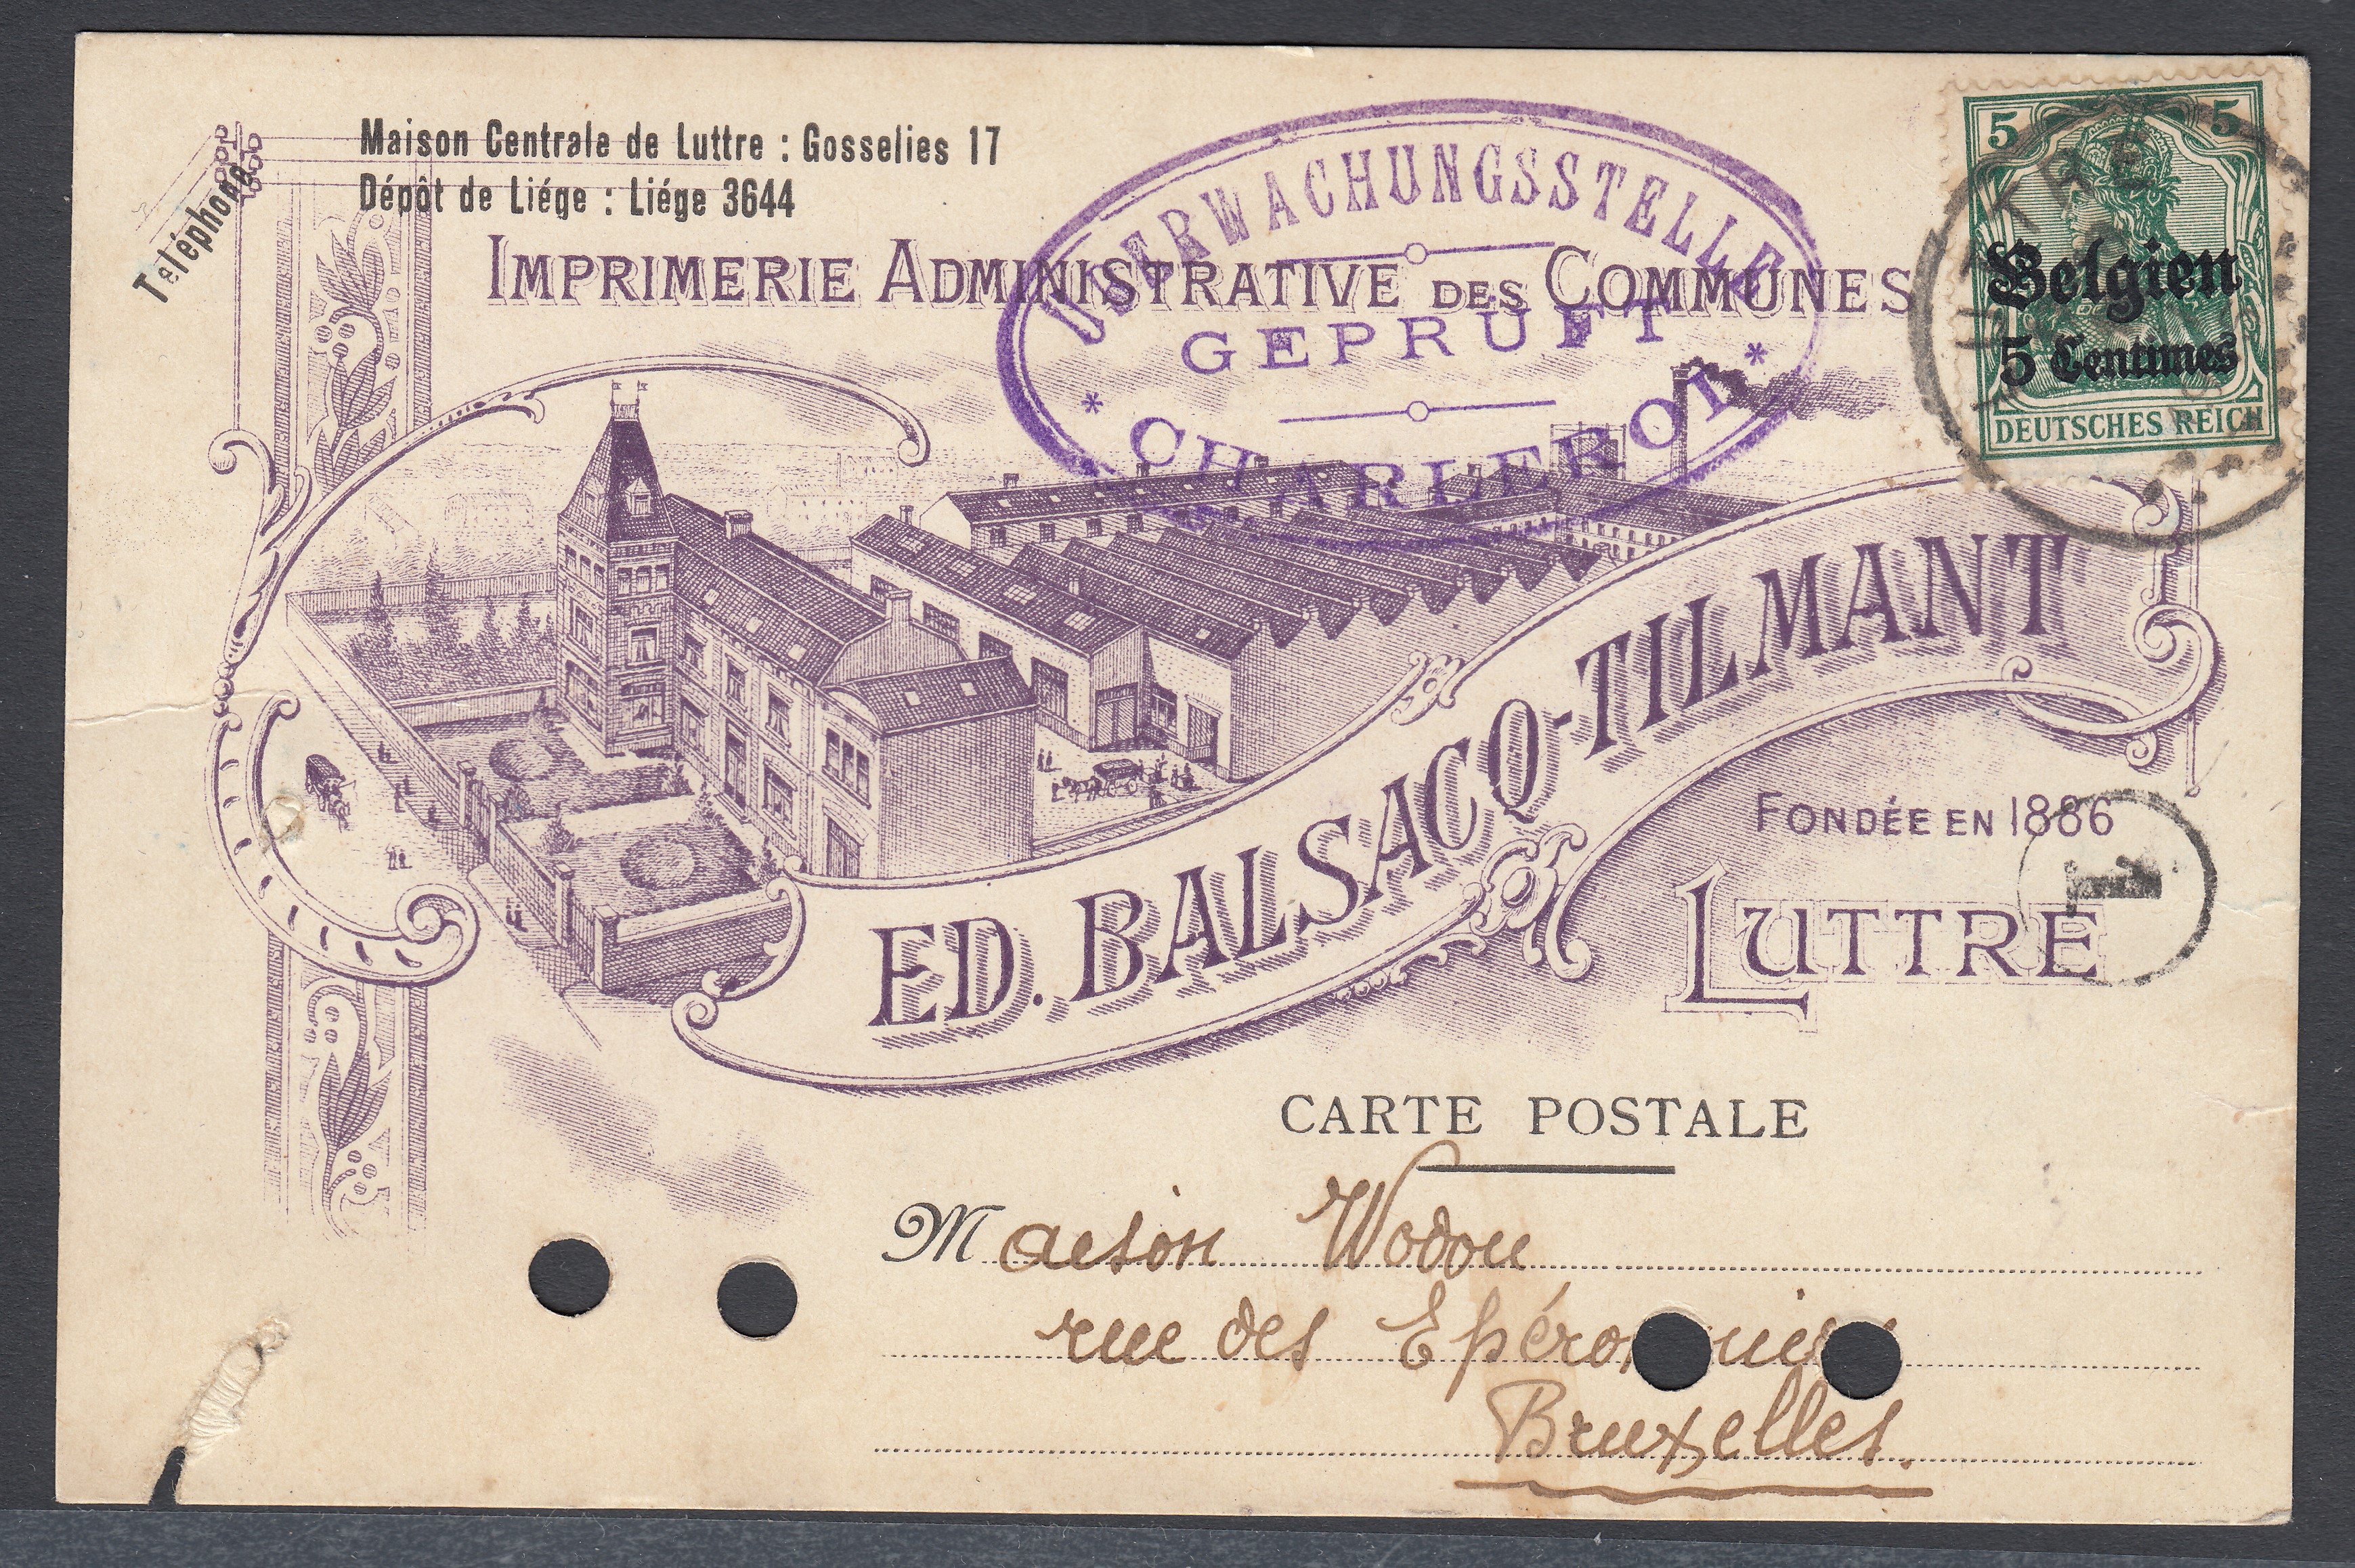 Téléphone
Maison Centrale de Luttre : Gosselies 17
Dépôt de Liége : Liége 3644
IMPRIMERIE ADMINISTRATIVE DES COMMUNES
ÜBERWACHUNGSSTELLE
GEPRÜFT
* CHARLEROI *
5 5
Belgien
5 Centimes
DEUTSCHES REICH
LUTTRE
ED. BALSACQ-TILMANT
FONDÉE EN 1886
1
LUTTRE
CARTE POSTALE
Maison Wodon
rue des
Bruxelles.